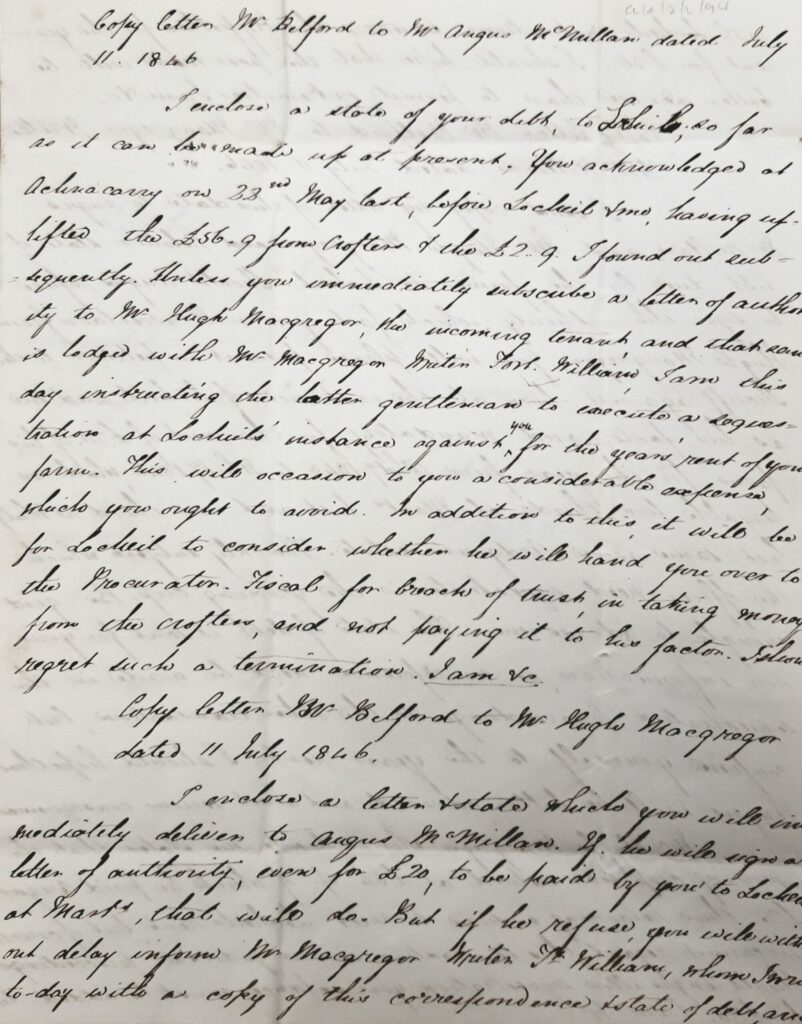 Copy letter Mr Belford to Mr Angus McMillan dated July
11. 1846
I enclose a state of your debt, to Locheil, so far
as it can be made up at present. You acknowledged at
Achnacarry on 22nd May last, before Locheil & me, having up-
lifted the £56-9 from Crofters & the £2-9. I found out sub-
-sequently. Unless you immediately subscribe a letter of author
ity to Mr Hugh Macgregor, the incoming tenant, and that same
is lodged with Mr Macgregor Writer Fort William, I am this
day instructing the latter gentleman to execute a seques-
tration at Locheil's instance against you for the years' rent of your
farm. This will occasion to you a considerable expense,
which you ought to avoid. In addition to this, it will be
for Locheil to consider whether he will hand you over to
the Procurator-Fiscal for breach of trust, in taking money
from the crofters, and not paying it to his factor. I shou
regret such a termination. I am &c.
Copy letter Mr Belford to Mr Hugh Macgregor
dated 11 July 1846.
I enclose a letter & state which you will im
mediately deliver to Angus McMillan. If he will sign a
letter of authority, even for £20, to be paid by you to Locheil
at Marts, that will do. But if he refuse, you will with
out delay inform Mr Macgregor Writer Ft William, whom I wri
to-day with a copy of this correspondence & state of debt, and